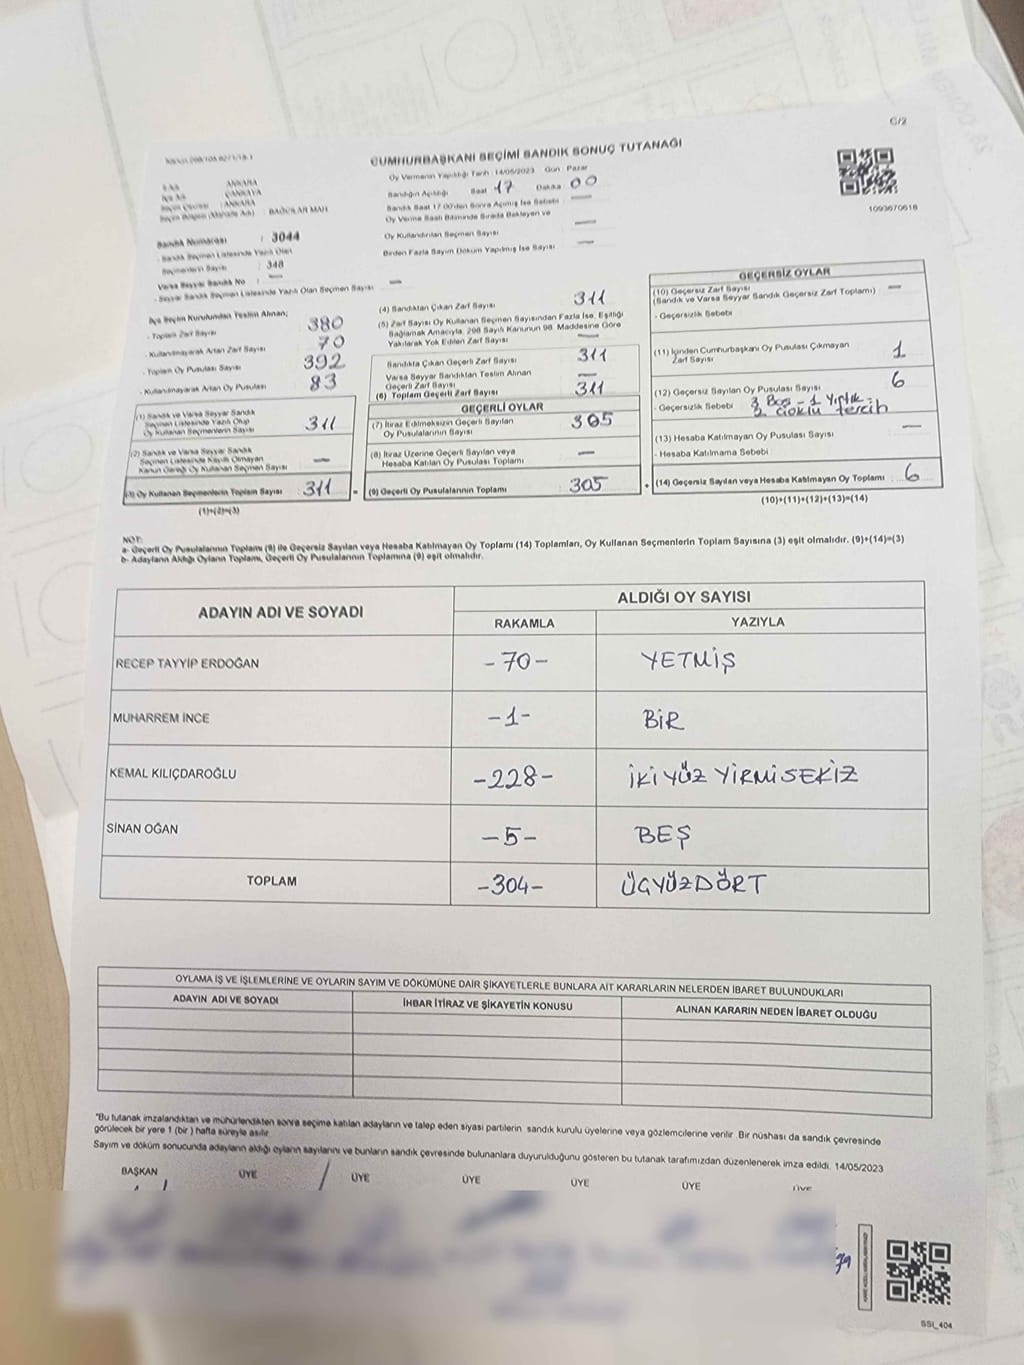 C/2
CUMHURBAŞKANI SEÇİMİ SANDIK SONUÇ TUTANAĞI
Oy Vermenin Yapıldığı Tarih : 14/05/2023 Gün : Pazar
Sandığın Açıldığı Saat 17 Dakika 00
Sandık Saat 17:00'den Sonra Açılmış İse Sebebi —
Oy Verme Saati Bitiminde Sırada Bekleyen ve
Oy Kullandırılan Seçmen Sayısı —
Birden Fazla Sayım Döküm Yapılmış İse Sayısı —
1093670618
ANKARA
ÇANKAYA
ANKARA
BAĞCILAR MAH
Sandık Numarası : 3044
- Sandık Seçmen Listesinde Yazılı Olan
Seçmenlerin Sayısı : 348
Varsa Seyyar Sandık No : —
- Seyyar Sandık Seçmen Listesinde Yazılı Olan Seçmen Sayısı : —
İlçe Seçim Kurulundan Teslim Alınan;
- Toplam Zarf Sayısı 380
- Kullanılmayarak Artan Zarf Sayısı 70
- Toplam Oy Pusulası Sayısı 392
- Kullanılmayarak Artan Oy Pusulası 83
(1) Sandık ve Varsa Seyyar Sandık
Seçmen Listesinde Yazılı Olup
Oy Kullanan Seçmenlerin Sayısı 311
(2) Sandık ve Varsa Seyyar Sandık
Seçmen Listesinde Kayıtlı Olmayan
Kanun Gereği Oy Kullanan Seçmen Sayısı —
(3) Oy Kullanan Seçmenlerin Toplam Sayısı 311
(1)+(2)=(3)
(4) Sandıktan Çıkan Zarf Sayısı 311
(5) Zarf Sayısı Oy Kullanan Seçmen Sayısından Fazla İse, Eşitliği
Sağlamak Amacıyla, 298 Sayılı Kanunun 98. Maddesine Göre
Yakılarak Yok Edilen Zarf Sayısı —
Sandıkta Çıkan Geçerli Zarf Sayısı 311
Varsa Seyyar Sandıktan Teslim Alınan
Geçerli Zarf Sayısı —
(6) Toplam Geçerli Zarf Sayısı 311
GEÇERLİ OYLAR
(7) İtiraz Edilmeksizin Geçerli Sayılan
Oy Pusulalarının Sayısı 305
(8) İtiraz Üzerine Geçerli Sayılan veya
Hesaba Katılan Oy Pusulası Toplamı —
= (9) Geçerli Oy Pusulalarının Toplamı 305
GEÇERSİZ OYLAR
(10) Geçersiz Zarf Sayısı
(Sandık ve Varsa Seyyar Sandık Geçersiz Zarf Toplamı) —
- Geçersizlik Sebebi
(11) İçinden Cumhurbaşkanı Oy Pusulası Çıkmayan
Zarf Sayısı 1
(12) Geçersiz Sayılan Oy Pusulası Sayısı 6
- Geçersizlik Sebebi 3 Boş - 1 Yırtık -
2 çoklu tercih
(13) Hesaba Katılmayan Oy Pusulası Sayısı —
- Hesaba Katılmama Sebebi
+ (14) Geçersiz Sayılan veya Hesaba Katılmayan Oy Toplamı : 6
(10)+(11)+(12)+(13)=(14)
NOT:
a- Geçerli Oy Pusulalarının Toplamı (9) ile Geçersiz Sayılan veya Hesaba Katılmayan Oy Toplamı (14) Toplamları, Oy Kullanan Seçmenlerin Toplam Sayısına (3) eşit olmalıdır. (9)+(14)=(3)
b- Adayların Aldığı Oyların Toplamı, Geçerli Oy Pusulalarının Toplamına (9) eşit olmalıdır.
ADAYIN ADI VE SOYADI ALDIĞI OY SAYISI
RAKAMLA YAZIYLA
RECEP TAYYİP ERDOĞAN -70- YETMİŞ
MUHARREM İNCE -1- BİR
KEMAL KILIÇDAROĞLU -228- İKİ YÜZ YİRMİ SEKİZ
SİNAN OĞAN -5- BEŞ
TOPLAM -304- ÜÇYÜZDÖRT
OYLAMA İŞ VE İŞLEMLERİNE VE OYLARIN SAYIM VE DÖKÜMÜNE DAİR ŞİKAYETLERLE BUNLARA AİT KARARLARIN NELERDEN İBARET BULUNDUKLARI
ADAYIN ADI VE SOYADI İHBAR İTİRAZ VE ŞİKAYETİN KONUSU ALINAN KARARIN NEDEN İBARET OLDUĞU
"Bu tutanak imzalandıktan ve mühürlendikten sonra seçime katılan adayların ve talep eden siyasi partilerin sandık kurulu üyelerine veya gözlemcilerine verilir. Bir nüshası da sandık çevresinde
görülecek bir yere 1 (bir) hafta süreyle asılır.
Sayım ve döküm sonucunda adayların aldığı oyların sayılarını ve bunların sandık çevresinde bulunanlara duyurulduğunu gösteren bu tutanak tarafımızdan düzenlenerek imza edildi. 14/05/2023
BAŞKAN ÜYE ÜYE ÜYE ÜYE ÜYE ÜYE
SSI_404